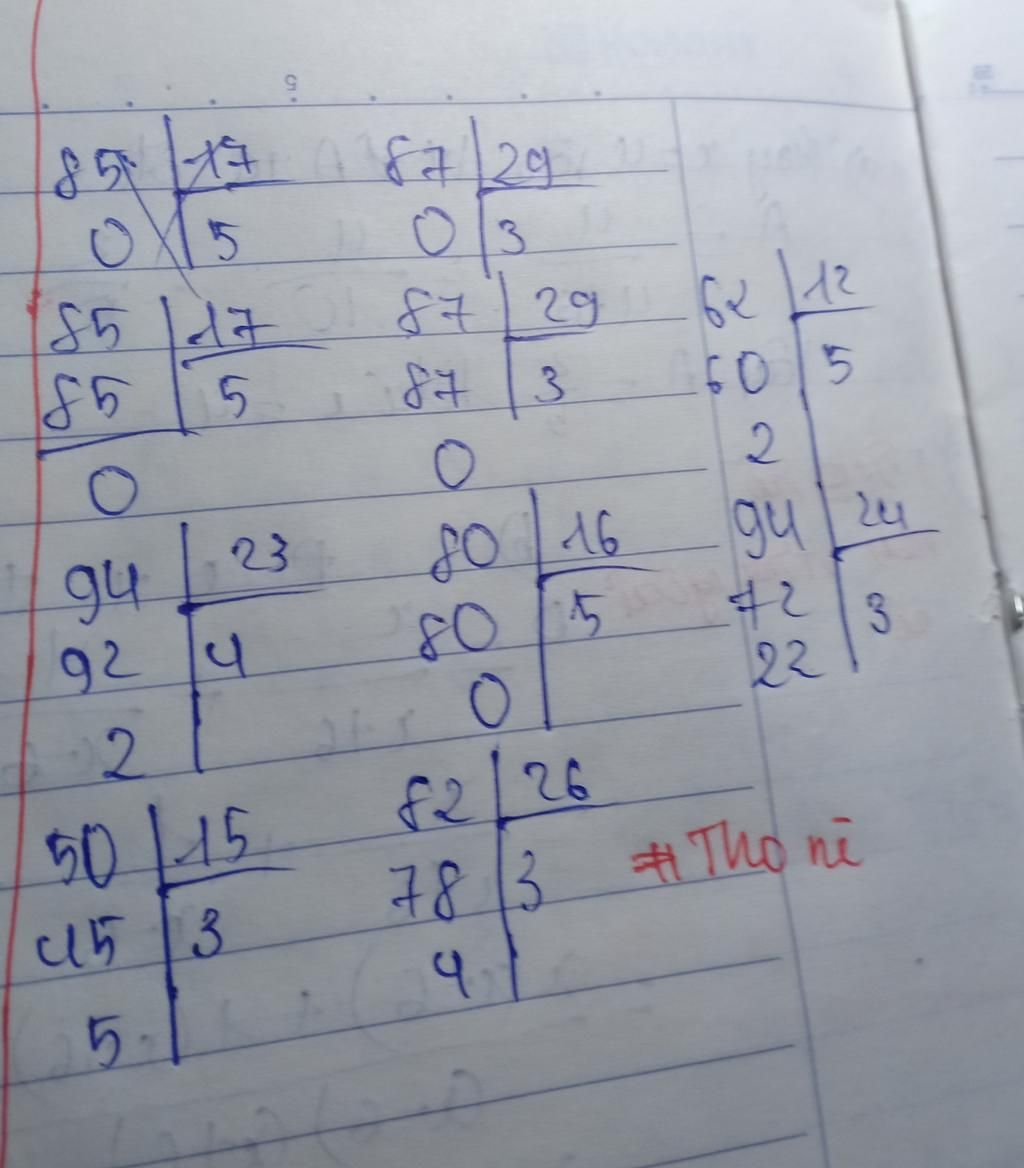 85 17 87 29
0 5 0 3
85 17 87 29
85 5 87 3
0 0
62 12
60 5
2
94 23 80 16
92 4 80 5
2 0
94 24
72 3
22
50 15 82 26
45 3 78 3
5 4